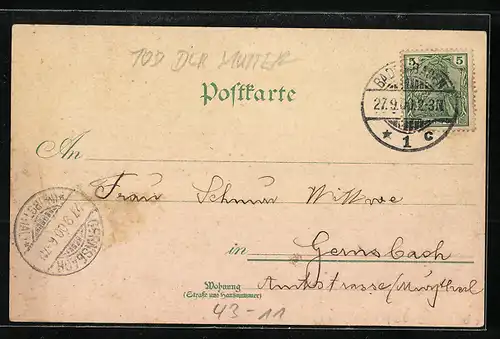 TOD DER MUTTER
Postkarte
5 5
BADEN-BADEN
27.9.00.2-3N
* 1 c
An
Frau Schnur Wittwe
in Gernsbach
Wohnung
(Straße und Hausnummer)
Amtsstrasse/Murgthal
GERNSBACH
27.9.00.6-7N
(MURGTHAL)
43-11